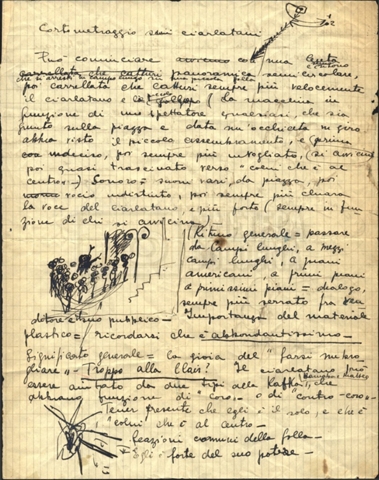 Cortometraggio sui ciarlatani
Può cominciare con una lenta
carrellata che catturi panoramica semicircolare,
poi carrellata che catturi sempre più velocemente
il ciarlatano e la folla (la macchina in
funzione di uno spettatore qualsiasi, che sia
giunto sulla piazza e data un'occhiata in giro
abbia visto il piccolo assembramento, e prima
con indeciso, poi sempre più invogliato, si avvicini
poi quasi trascinato verso "colui che è al
centro".) Sonoro = suoni vari, da piazza, poi
voce indistinta, poi sempre più chiara
la voce del ciarlatano, e più forte (sempre in fun
zione di chi si avvicina)
Ritmo generale = passare
da campi lunghi, a mezzi
campi lunghi, a piani
americani, a primi piani
a primissimi piani = dialogo,
sempre più serrato fra
dotore e suo pubblico =
Importanza del materiale
plastico = ricordarsi che è abbondantissimo
Significato generale = la gioia del "farsi imbro
gliare" - Troppo alla Clair? Il ciarlatano può
essere aiutato da due tipi alla Kafka, che
abbiano funzione di "coro" o di "contro-coro"
Tener presente che egli è il solo, e che è
"colui" che è al centro
Reazioni comuni della folla
Egli è forte del suo potere